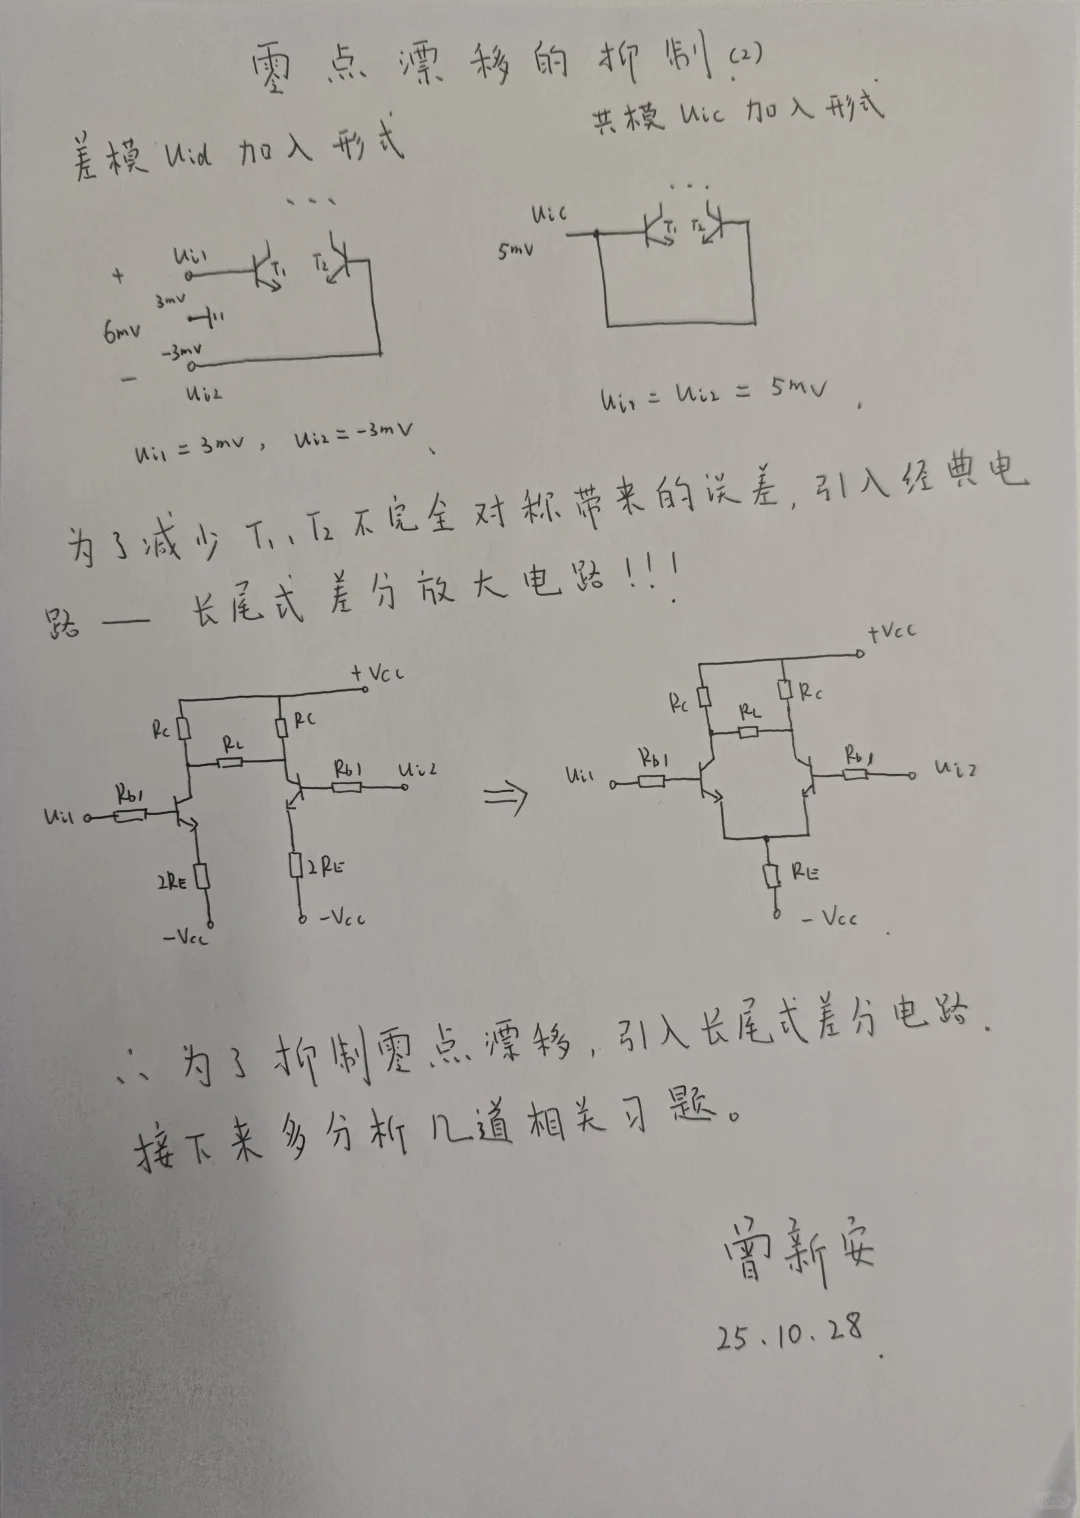 零点漂移的抑制(2)
差模 Uid 加入形式
共模 Uic 加入形式
...
+
Ui1
3mV
6mV
-3mV
-
Ui2
T1
T2
Ui1 = 3mV, Ui2 = -3mV、
...
Uic
5mV
T1
T2
Ui1 = Ui2 = 5mV,
为了减少T1、T2不完全对称带来的误差,引入经典电
路 — 长尾式差分放大电路!!!
+Vcc
Rc
Rc
RL
Rb1
Rb1
Ui1
Ui2
2RE
2RE
-Vcc
-Vcc
⇒
+Vcc
Rc
Rc
RL
Rb1
Rb1
Ui1
Ui2
RE
-Vcc
∴为了抑制零点漂移,引入长尾式差分电路.
接下来多分析几道相关习题。
曾新安
25.10.28